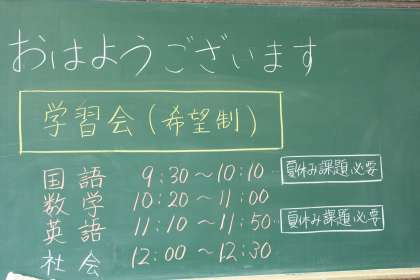 おはようございます
学習会(希望制)
国語 9:30〜10:10… 夏休み課題必要
数学 10:20〜11:00
英語 11:10〜11:50… 夏休み課題必要
社会 12:00〜12:30